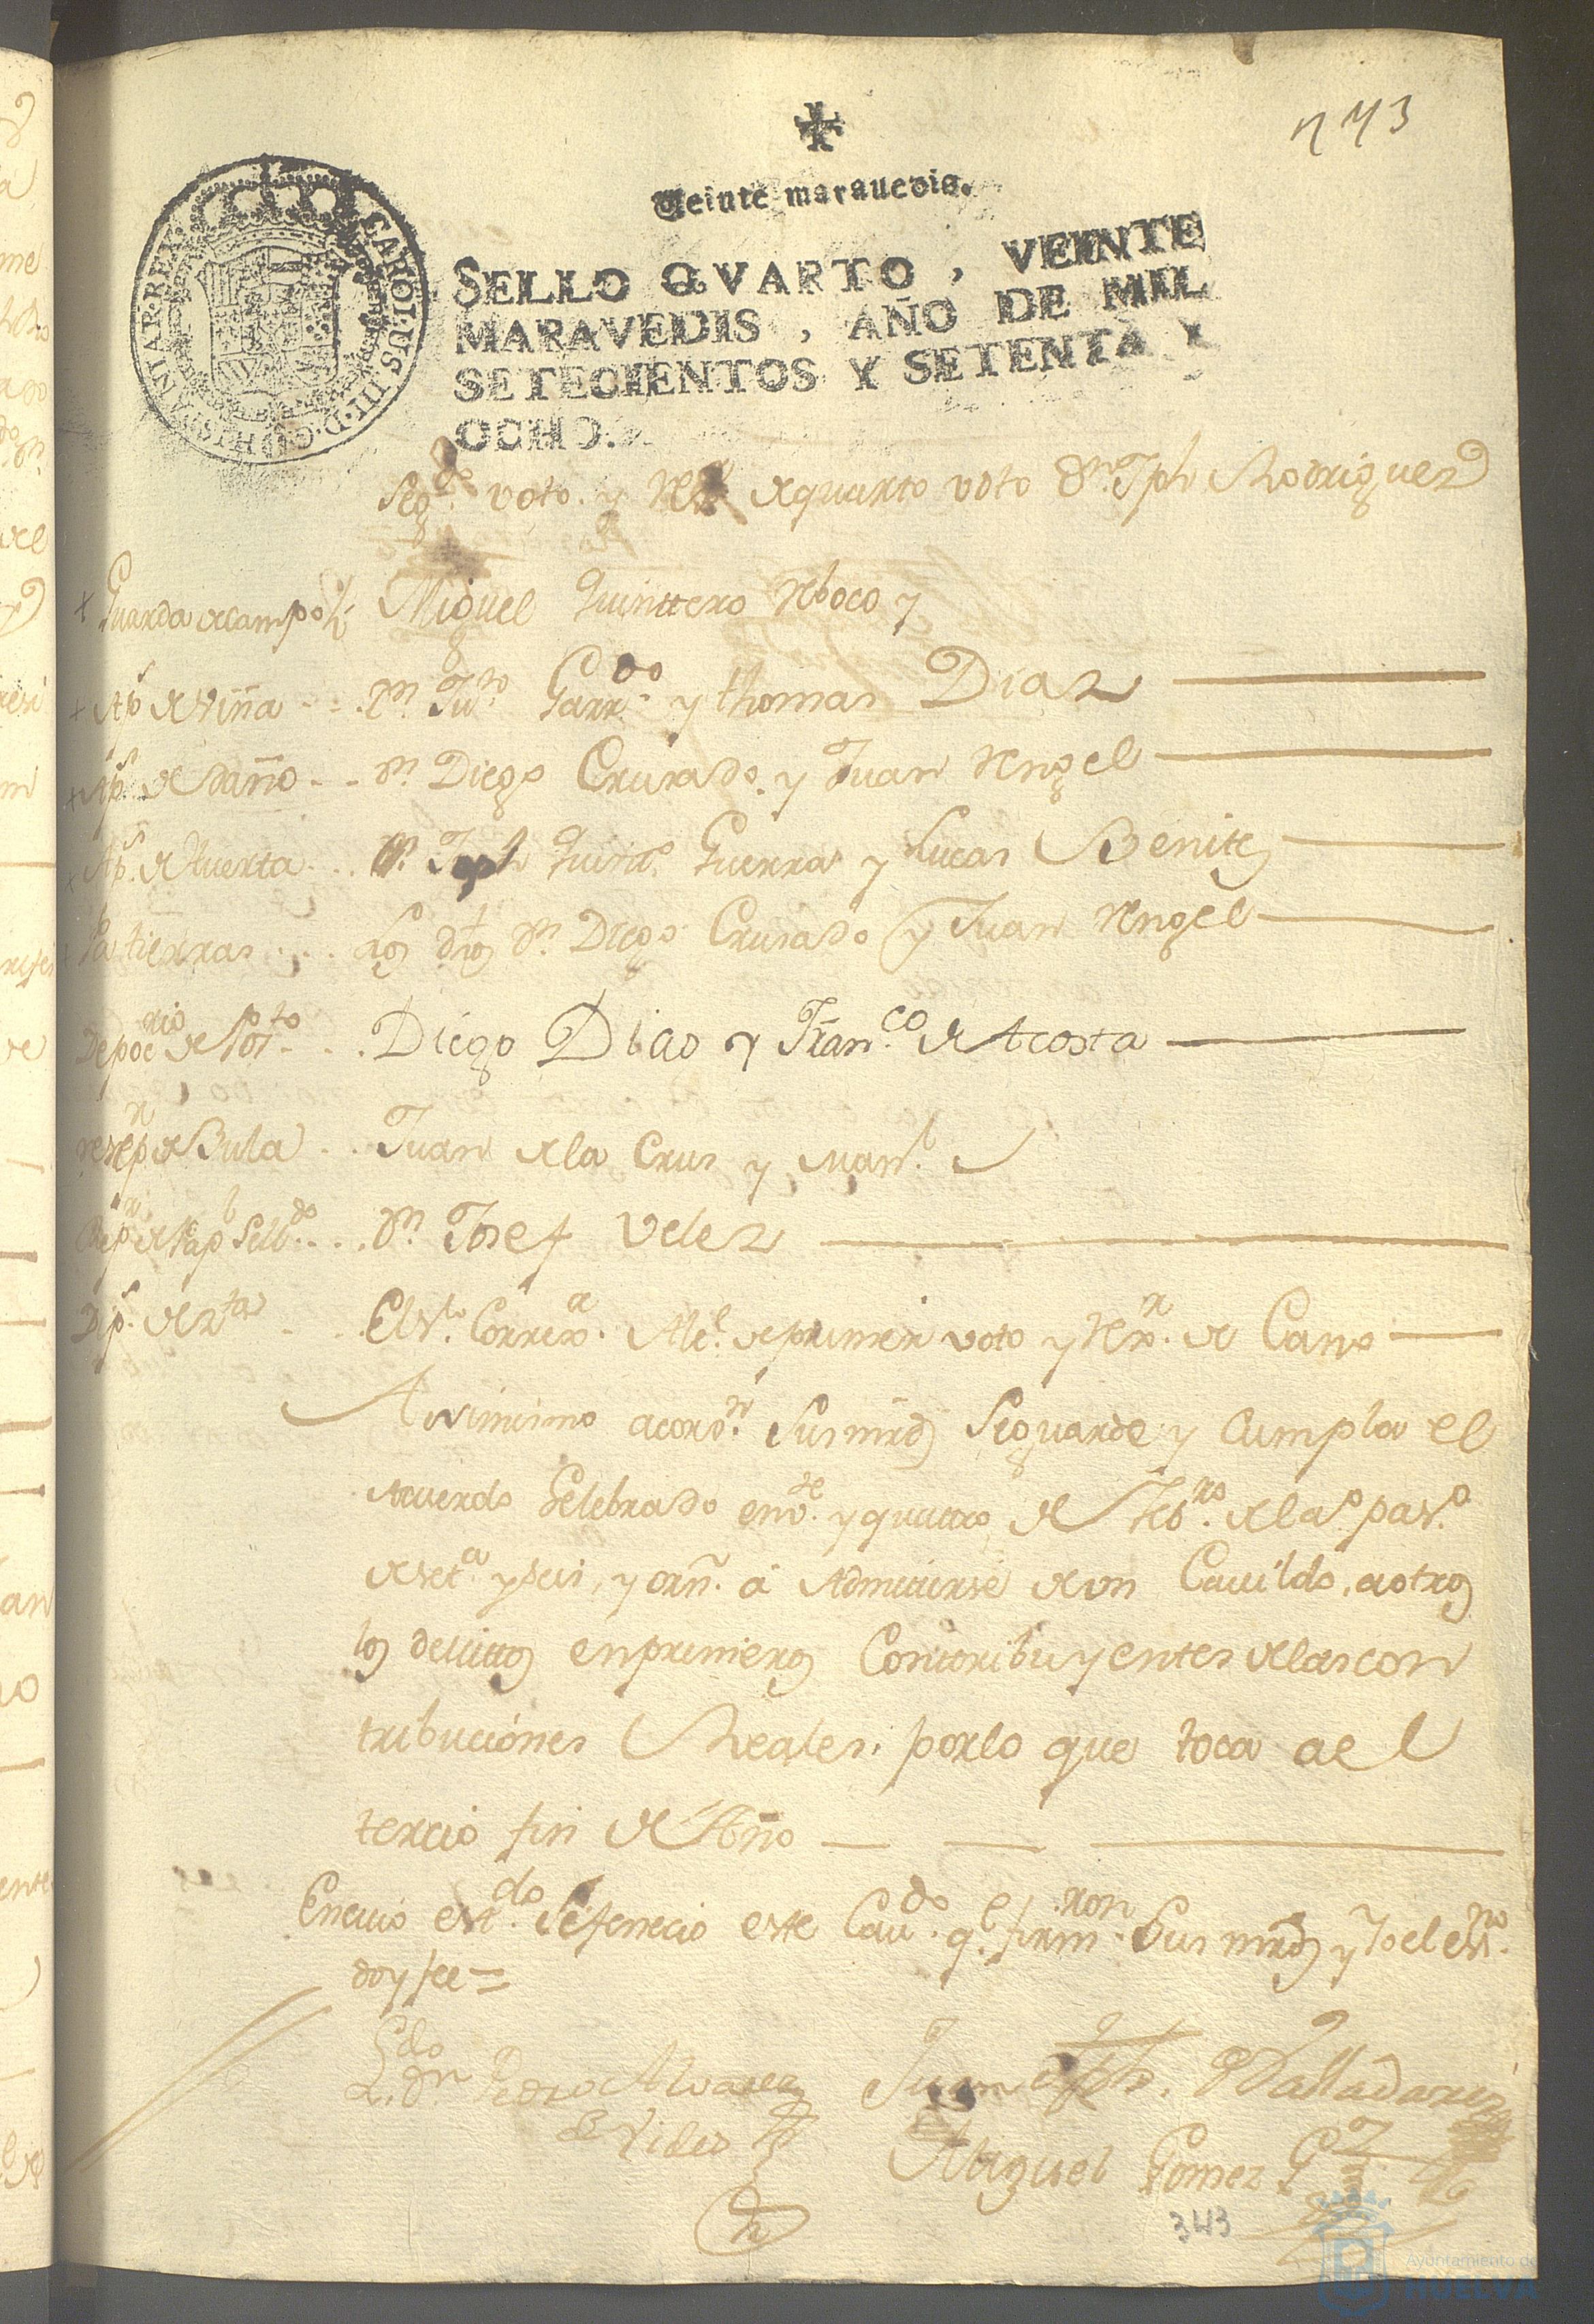 n 43
Veinte maravedis.
CAROLUS III D. G. HISPANIAR. REX
SELLO QVARTO, VEINTE
MARAVEDIS, AÑO DE MIL
SETECIENTOS Y SETENTA Y
OCHO.
Segdo. voto. y de quarto voto Dn. Jph Rodriguez
Guarda de campo Miguel Quinttero
Aps. de viña Dn. Juo. Garrdo. y thomas Diaz
Aps. de daño Dn. Diego Crusado. y Juan Rengel
Aps. de Huerta Dn. Jph Quinto. Guerra y Lucas Benites
Pa tierras los dhos Dn. Diego Crusado y Juan Rengel
Depocrio de Posto Diego Diaz y Franco. de Acosta
resepr de Bula Juan de la Crus y Manl.
Repr. de Papl Selldo. Dn. Josef Velez
Dips. de Rta El Sr. Correxr. Alce. de primer voto y Rexr. de Cano
Asimismo acordn. sus mrds se guarde y cumpla el
Acuerdo selebrado en ve. y quattro de Febro. de la po. paso.
de seta. y seis, y orñ. a Admitirse de un Cavildo, a otros
los devittos en primeros Contribuyentes de las con
tribuciones Reales, por lo que toca a el
tercio fin de Año
En cuio estdo. se fenecio este Cavdo. qe. firmaron sus mrds y Yo el essno.
doy fee =
Ldo. Dn. Pedro Alvarez
Juan Jph. Valladares
Miguel Gomez
343
Ayuntamiento de
HUELVA